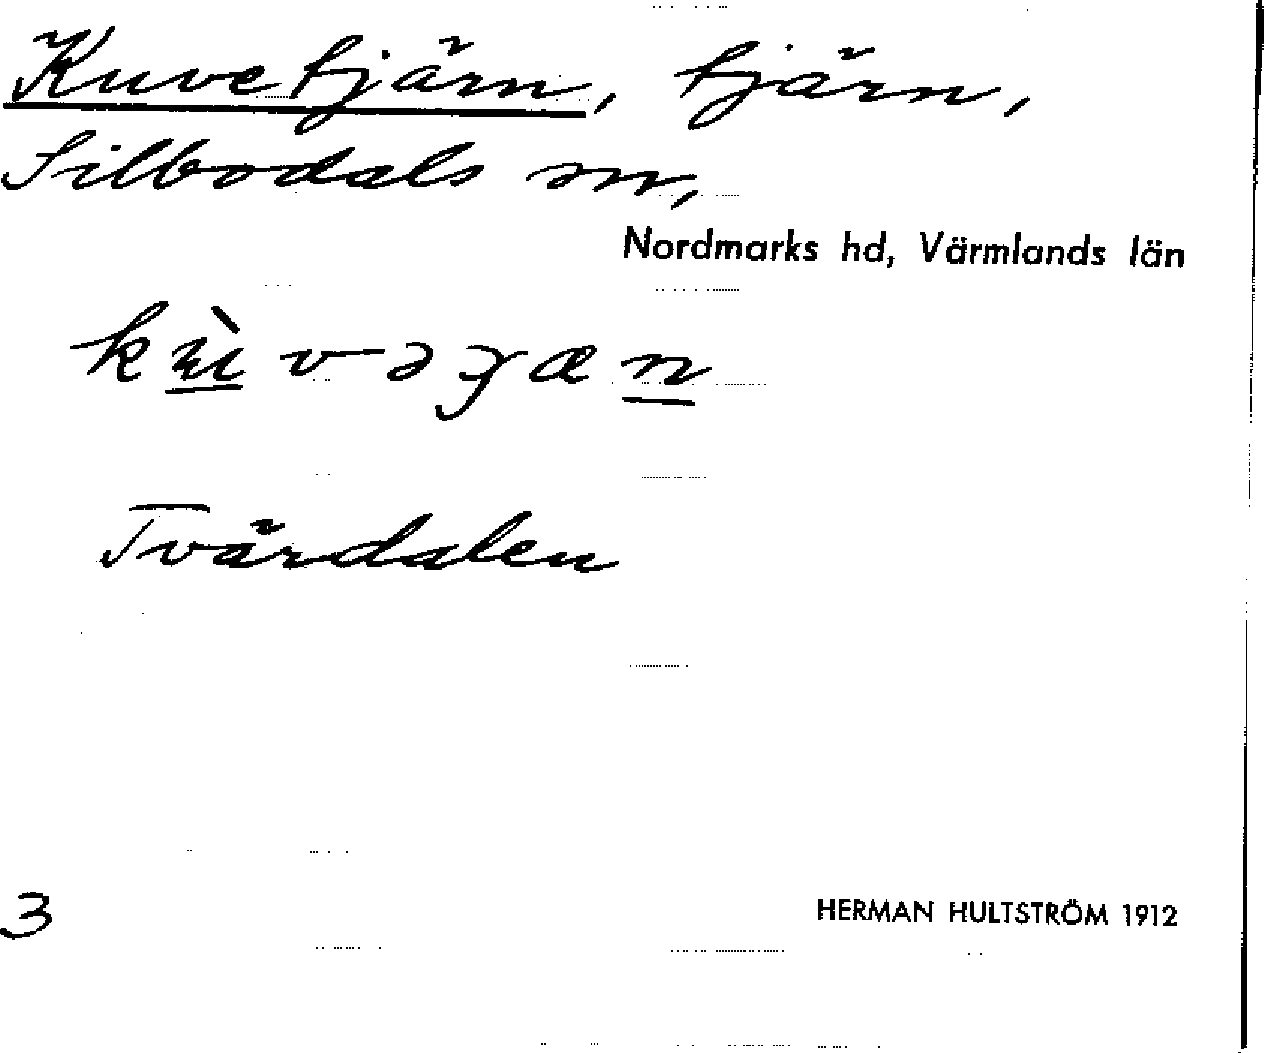 Kuvetjärn, tjärn,
Silbodals sn,
Nordmarks hd, Värmlands län
Tvärdalen
3
HERMAN HULTSTRÖM 1912